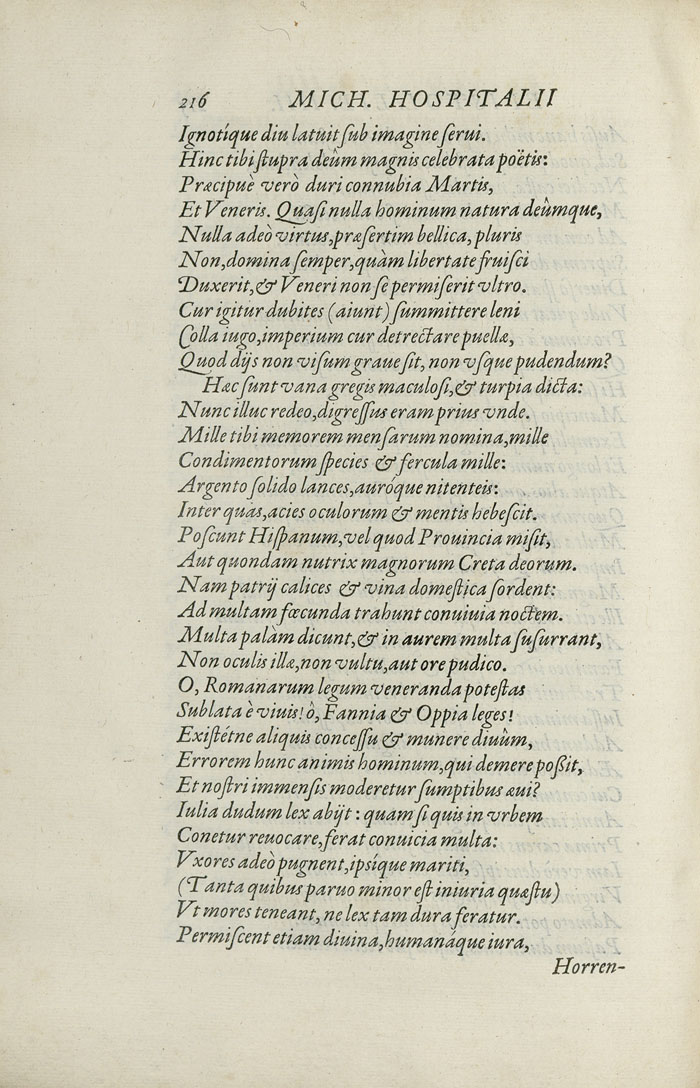 216 MICH. HOSPITALII
Ignotíque diu latuit ſub imagine ſerui.
Hinc tibi ſtupra deûm magnis celebrata poëtis:
Præcipuè verò duri connubia Martis,
Et Veneris. Quaſi nulla hominum natura deûmque,
Nulla adeò virtus, præſertim bellica, pluris
Non, domina ſemper, quàm libertate fruiſci
Duxerit, & Veneri non ſe permiſerit vltro.
Cur igitur dubites (aiunt) ſummittere leni
Colla iugo, imperium cur detrectare puellæ,
Quod dijs non viſum graue ſit, non vſque pudendum?
Hæc ſunt vana gregis maculoſi, & turpia dicta:
Nunc illuc redeo, digreſſus eram prius vnde.
Mille tibi memorem menſarum nomina, mille
Condimentorum ſpecies & fercula mille:
Argento ſolido lances, auróque nitenteis:
Inter quas, acies oculorum & mentis hebeſcit.
Poſcunt Hiſpanum, vel quod Prouincia miſit,
Aut quondam nutrix magnorum Creta deorum.
Nam patrij calices & vina domeſtica ſordent:
Ad multam fœcunda trahunt conuiuia noctem.
Multa palàm dicunt, & in aurem multa ſuſurrant,
Non oculis illæ, non vultu, aut ore pudico.
O, Romanarum legum veneranda poteſtas
Sublata è viuis! ò, Fannia & Oppia leges!
Exiſtétne aliquis conceſſu & munere diuûm,
Errorem hunc animis hominum, qui demere poßit,
Et noſtri immenſis moderetur ſumptibus æui?
Iulia dudum lex abijt: quam ſi quis in vrbem
Conetur reuocare, ferat conuicia multa:
Vxores adeò pugnent, ipſíque mariti,
(Tanta quibus paruo minor eſt iniuria quæſtu)
Vt mores teneant, ne lex tam dura feratur.
Permiſcent etiam diuina, humanáque iura,
Horren-